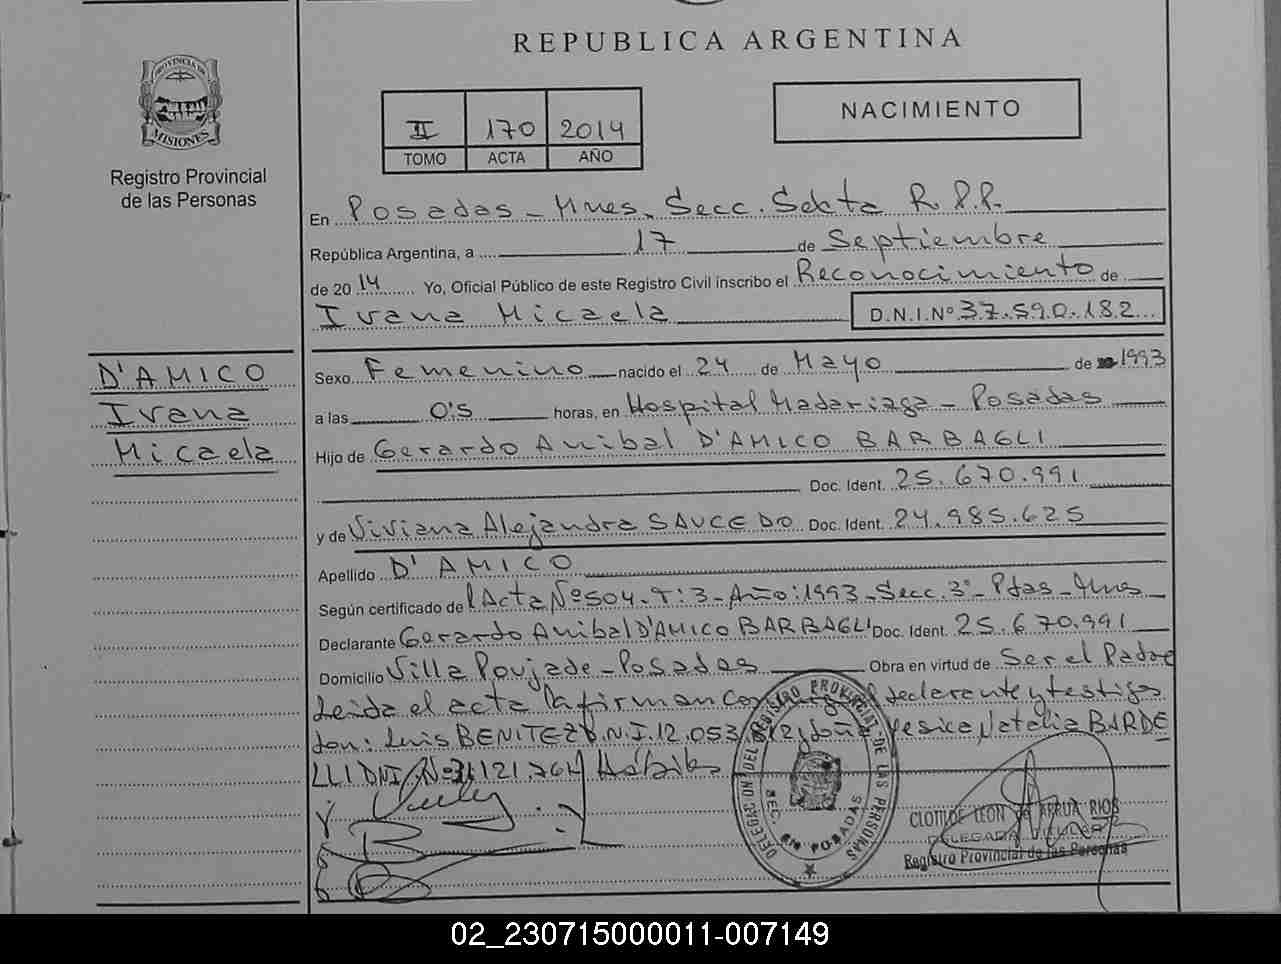 REPUBLICA ARGENTINA
PROVINCIA DE
MISIONES
Registro Provincial
de las Personas
II 170 2014
TOMO ACTA AÑO
NACIMIENTO
En Posadas - Mnes. Secc. Sexta R.P.P.
República Argentina, a 17 de Septiembre
de 2014 Yo, Oficial Público de este Registro Civil inscribo el Reconocimiento de
Ivana Micaela D.N.I.Nº 37.590.182
D'AMICO
Ivana
Micaela
Sexo Femenino nacido el 24 de Mayo de 1993
a las 0'5 horas, en Hospital Madariaga - Posadas
Hijo de Gerardo Anibal D'AMICO BARBAGLI
Doc. Ident. 25.670.991
y de Viviana Alejandra SAUCEDO Doc. Ident. 24.985.625
Apellido D'AMICO
Según certificado del Acta Nº 504-T:3-Año:1993-Secc.3º-Pdas-Mnes
Declarante Gerardo Anibal D'AMICO BARBAGLI Doc. Ident. 25.670.991
Domicilio Villa Poujade-Posadas Obra en virtud de Ser el Padre
Leida el acta la firman declarante y testigos
don: Luis BENITEZ D.N.I.12.053 doña Yesica Natalia BARDE
LLI DNI Nº 31.121.764 Hábiles
DELEGACION DEL REGISTRO PROVINCIAL DE LAS PERSONAS
SEC. 6ta POSADAS
CLOTILDE LEON de AFRUA RIOS
DELEGADA TITULAR
Registro Provincial de las Personas
02_230715000011-007149